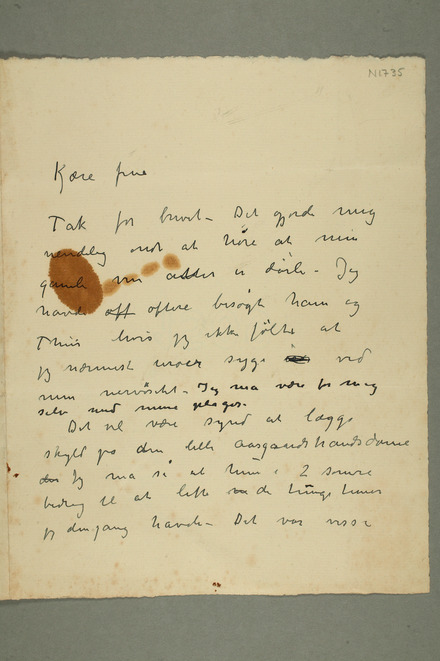 N1735
Kære frue
Tak for brevet – Det gjorde mig
uendelig ondt at høre at min
gamle ven atter er dårlig – Jeg
havde off oftere besøgt ham og
hvis jeg ikke følte at
jeg nærmest ved
min nervøsitet. Jeg må være for mig
selv med mine plager.
Det vil være synd at lægge
skyld på den lille aasgaardstrandsdame
Jeg må si at hun i 2 somre
bidrog til at lette de tunge timer
jeg dengang havde – Det var visse